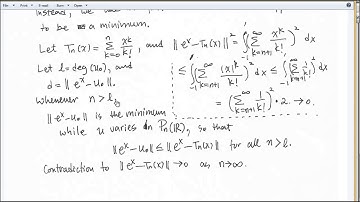 instead, we use
to be a minimum.
Let Tₙ(x) = Σ_{k=0}^{n} x^k/k!, and ‖e^x − Tₙ(x)‖² = ∫_{-1}^{1} (Σ_{k=n+1}^{∞} x^k/k!)² dx
Let l = deg(u₀), and ≤ ∫_{-1}^{1} (Σ_{k=n+1}^{∞} |x|^k/k!)² dx ≤ ∫_{-1}^{1} (Σ_{k=n+1}^{∞} 1/k!)² dx
d = ‖e^x − u₀‖.
Whenever n > l, = (Σ_{k=n+1}^{∞} 1/k!)² · 2. → 0.
‖e^x − u₀‖ is the minimum
while u varies in Pₙ(ℝ), so that
‖e^x − u₀‖ ≤ ‖e^x − Tₙ(x)‖ for all n > l.
Contradiction to ‖e^x − Tₙ(x)‖ → 0 as n → ∞.